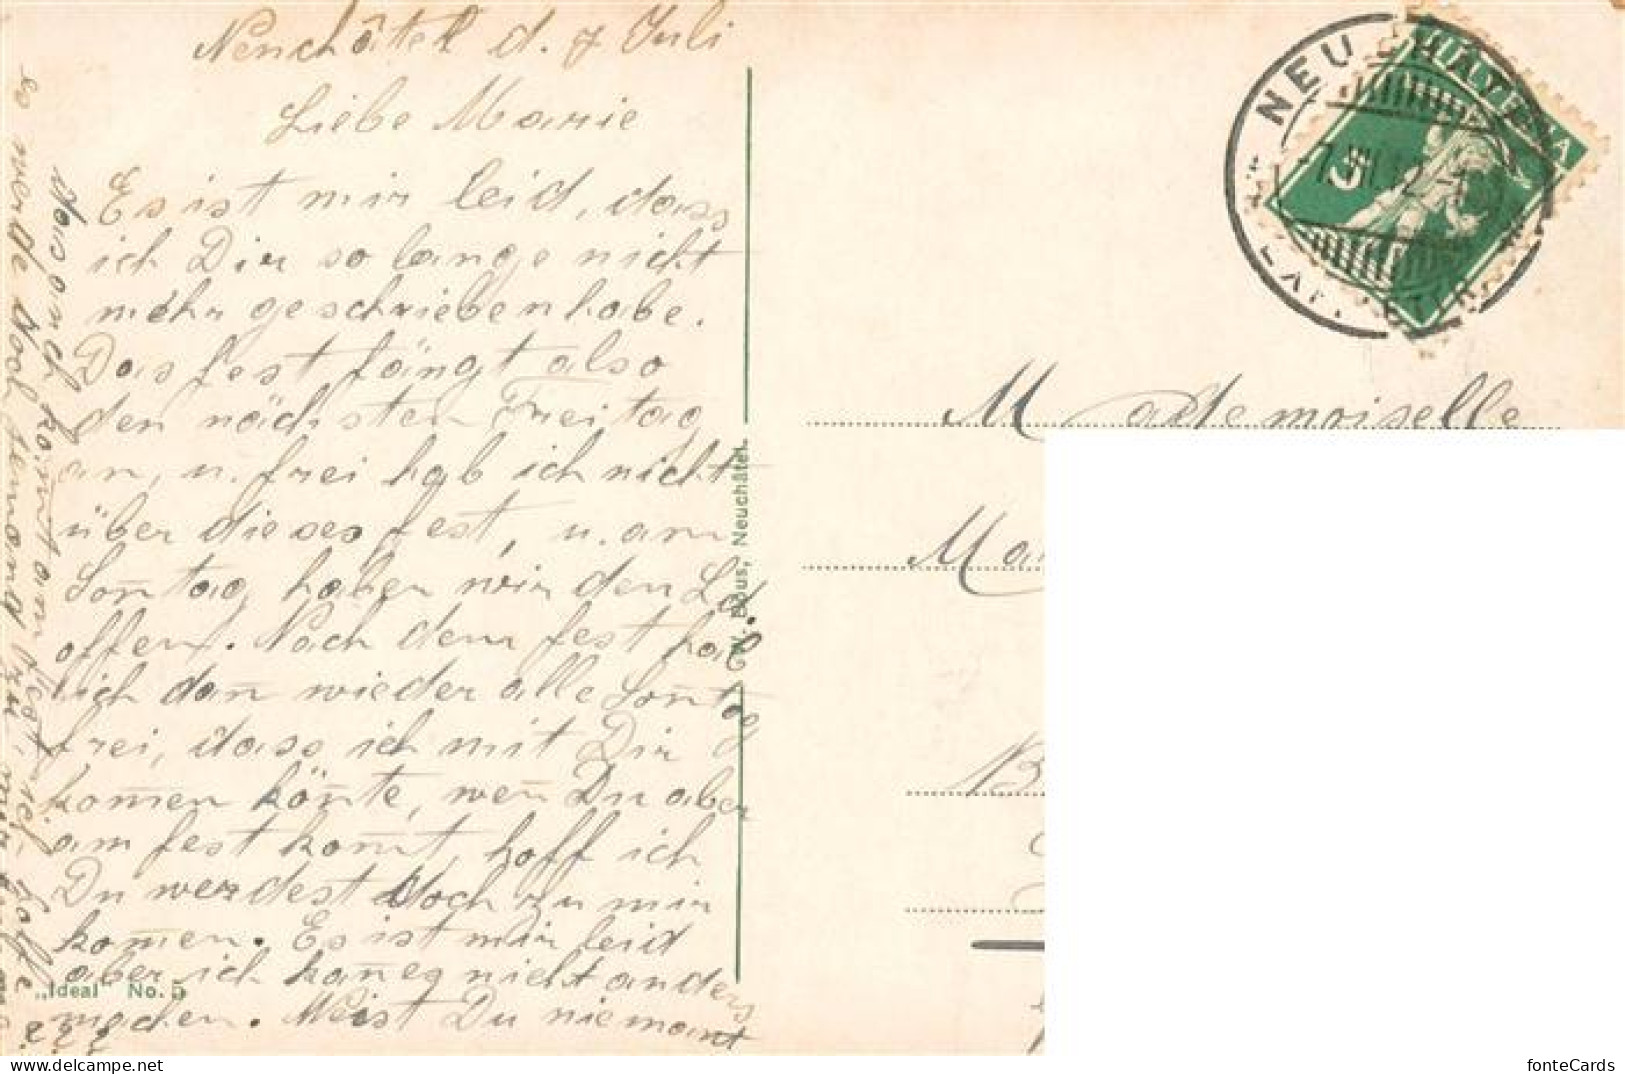 Neuchâtel d. 7 Juli
Liebe Marie
Es ist mir leid, dass
ich Dir so lange nicht
mehr geschrieben habe.
Das fest fängt also
den nächsten Freitag
an, u. frei hab ich nicht
über dieses fest, u. am
Son̄tag haben wir den
offen. Nach dem fest hab
ich dan̄ wieder alle Son̄tag
frei, dass ich mit Dir
kom̄en kön̄te, wen̄ Du aber
am fest kom̄t, hoff ich
Du werdest doch zu mir
kom̄en. Es ist mir leid
aber ich kan̄ es nicht anders
machen. Weist Du niemant
der auch kom̄t am fest, ich hoffe
es werde doch jemand zu mir
"Ideal" No. 5
Neuchâtel.
NEUCHÂTEL
7.VII.12
HELVETIA
5
Mademoiselle
fonteCards